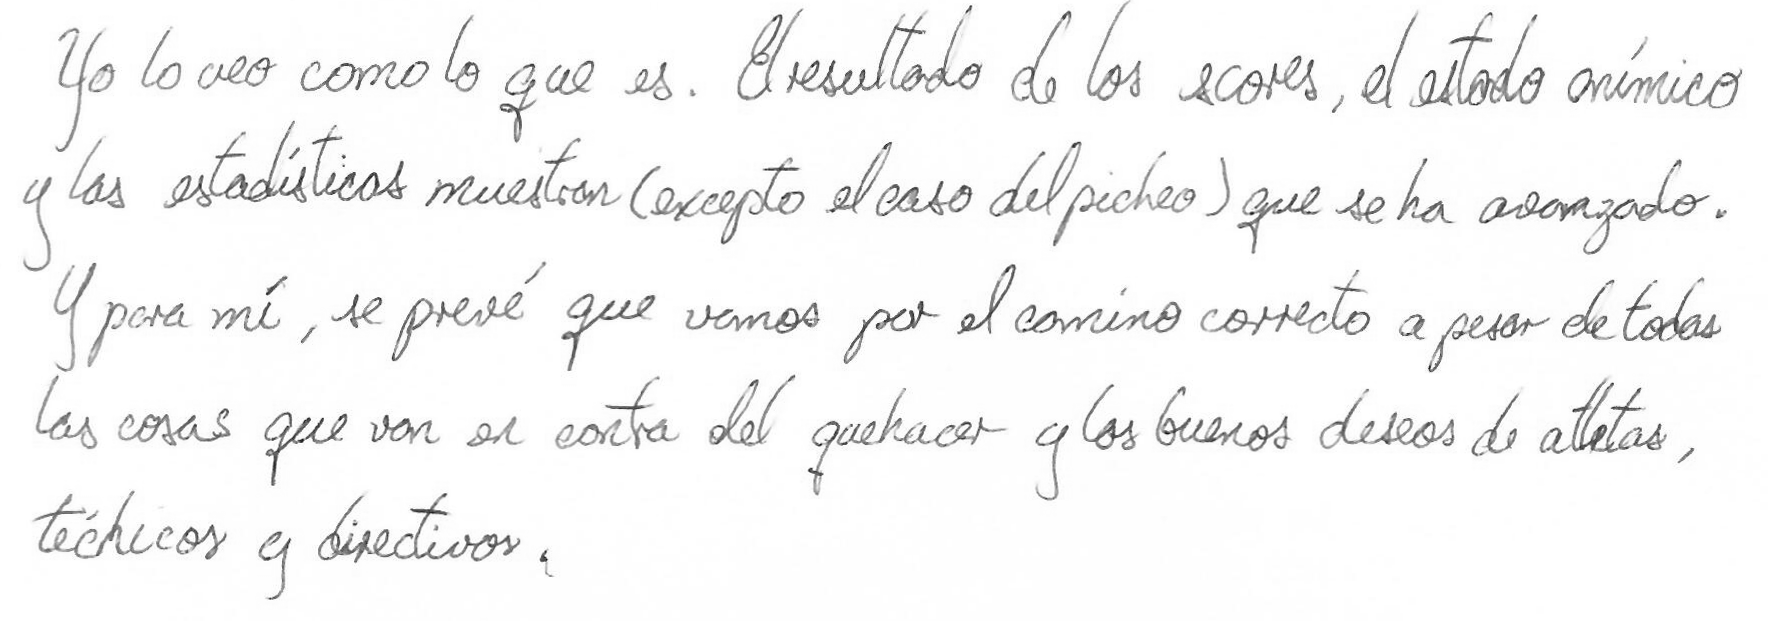 Yo lo veo como lo que es. El resultado de los scores, el estado anímico
y las estadísticas muestran (excepto el caso del picheo) que se ha avanzado.
Y para mí, se prevé que vamos por el camino correcto a pesar de todas
las cosas que van en contra del quehacer y los buenos deseos de atletas,
técnicos y directivos.